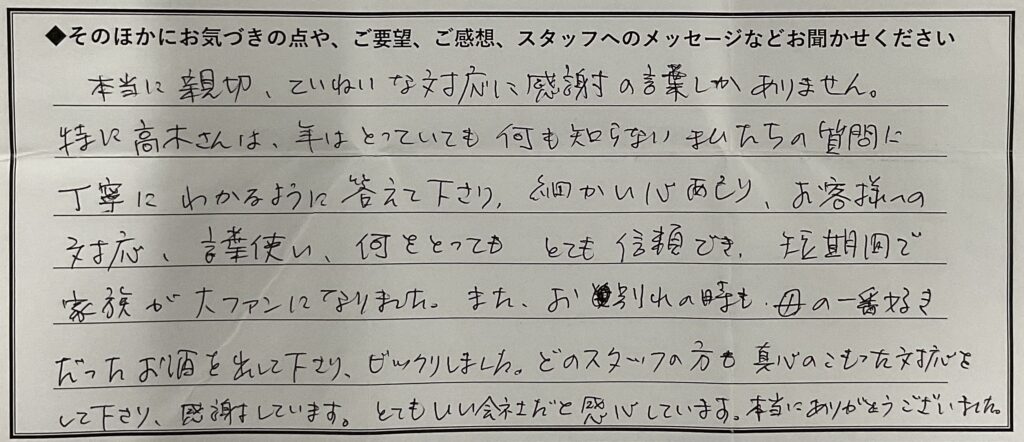 ◆そのほかにお気づきの点や、ご要望、ご感想、スタッフへのメッセージなどお聞かせください
本当に親切、ていねいな対応に感謝の言葉しかありません。
特に高木さんは、年はとっていても何も知らないまいたちの質問に
丁寧にわかるように答えて下さり、細かい心配り、お客様への
対応、言葉使い、何をとっても とても信頼でき、短期間で
家族が大ファンになりました。また、お別れの時も、母の一番好き
だったお酒を出して下さり、ビックリしました。どのスタッフの方も真心のこもった対応を
して下さり、感謝しています。とてもいい会社だと感心しています。本当にありがとうございました。